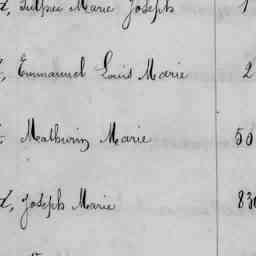 t, Sulpice Marie Joseph 1
t, Emmanuel Louis Marie 2
t, Mathurin Marie 50
t, Joseph Marie 830